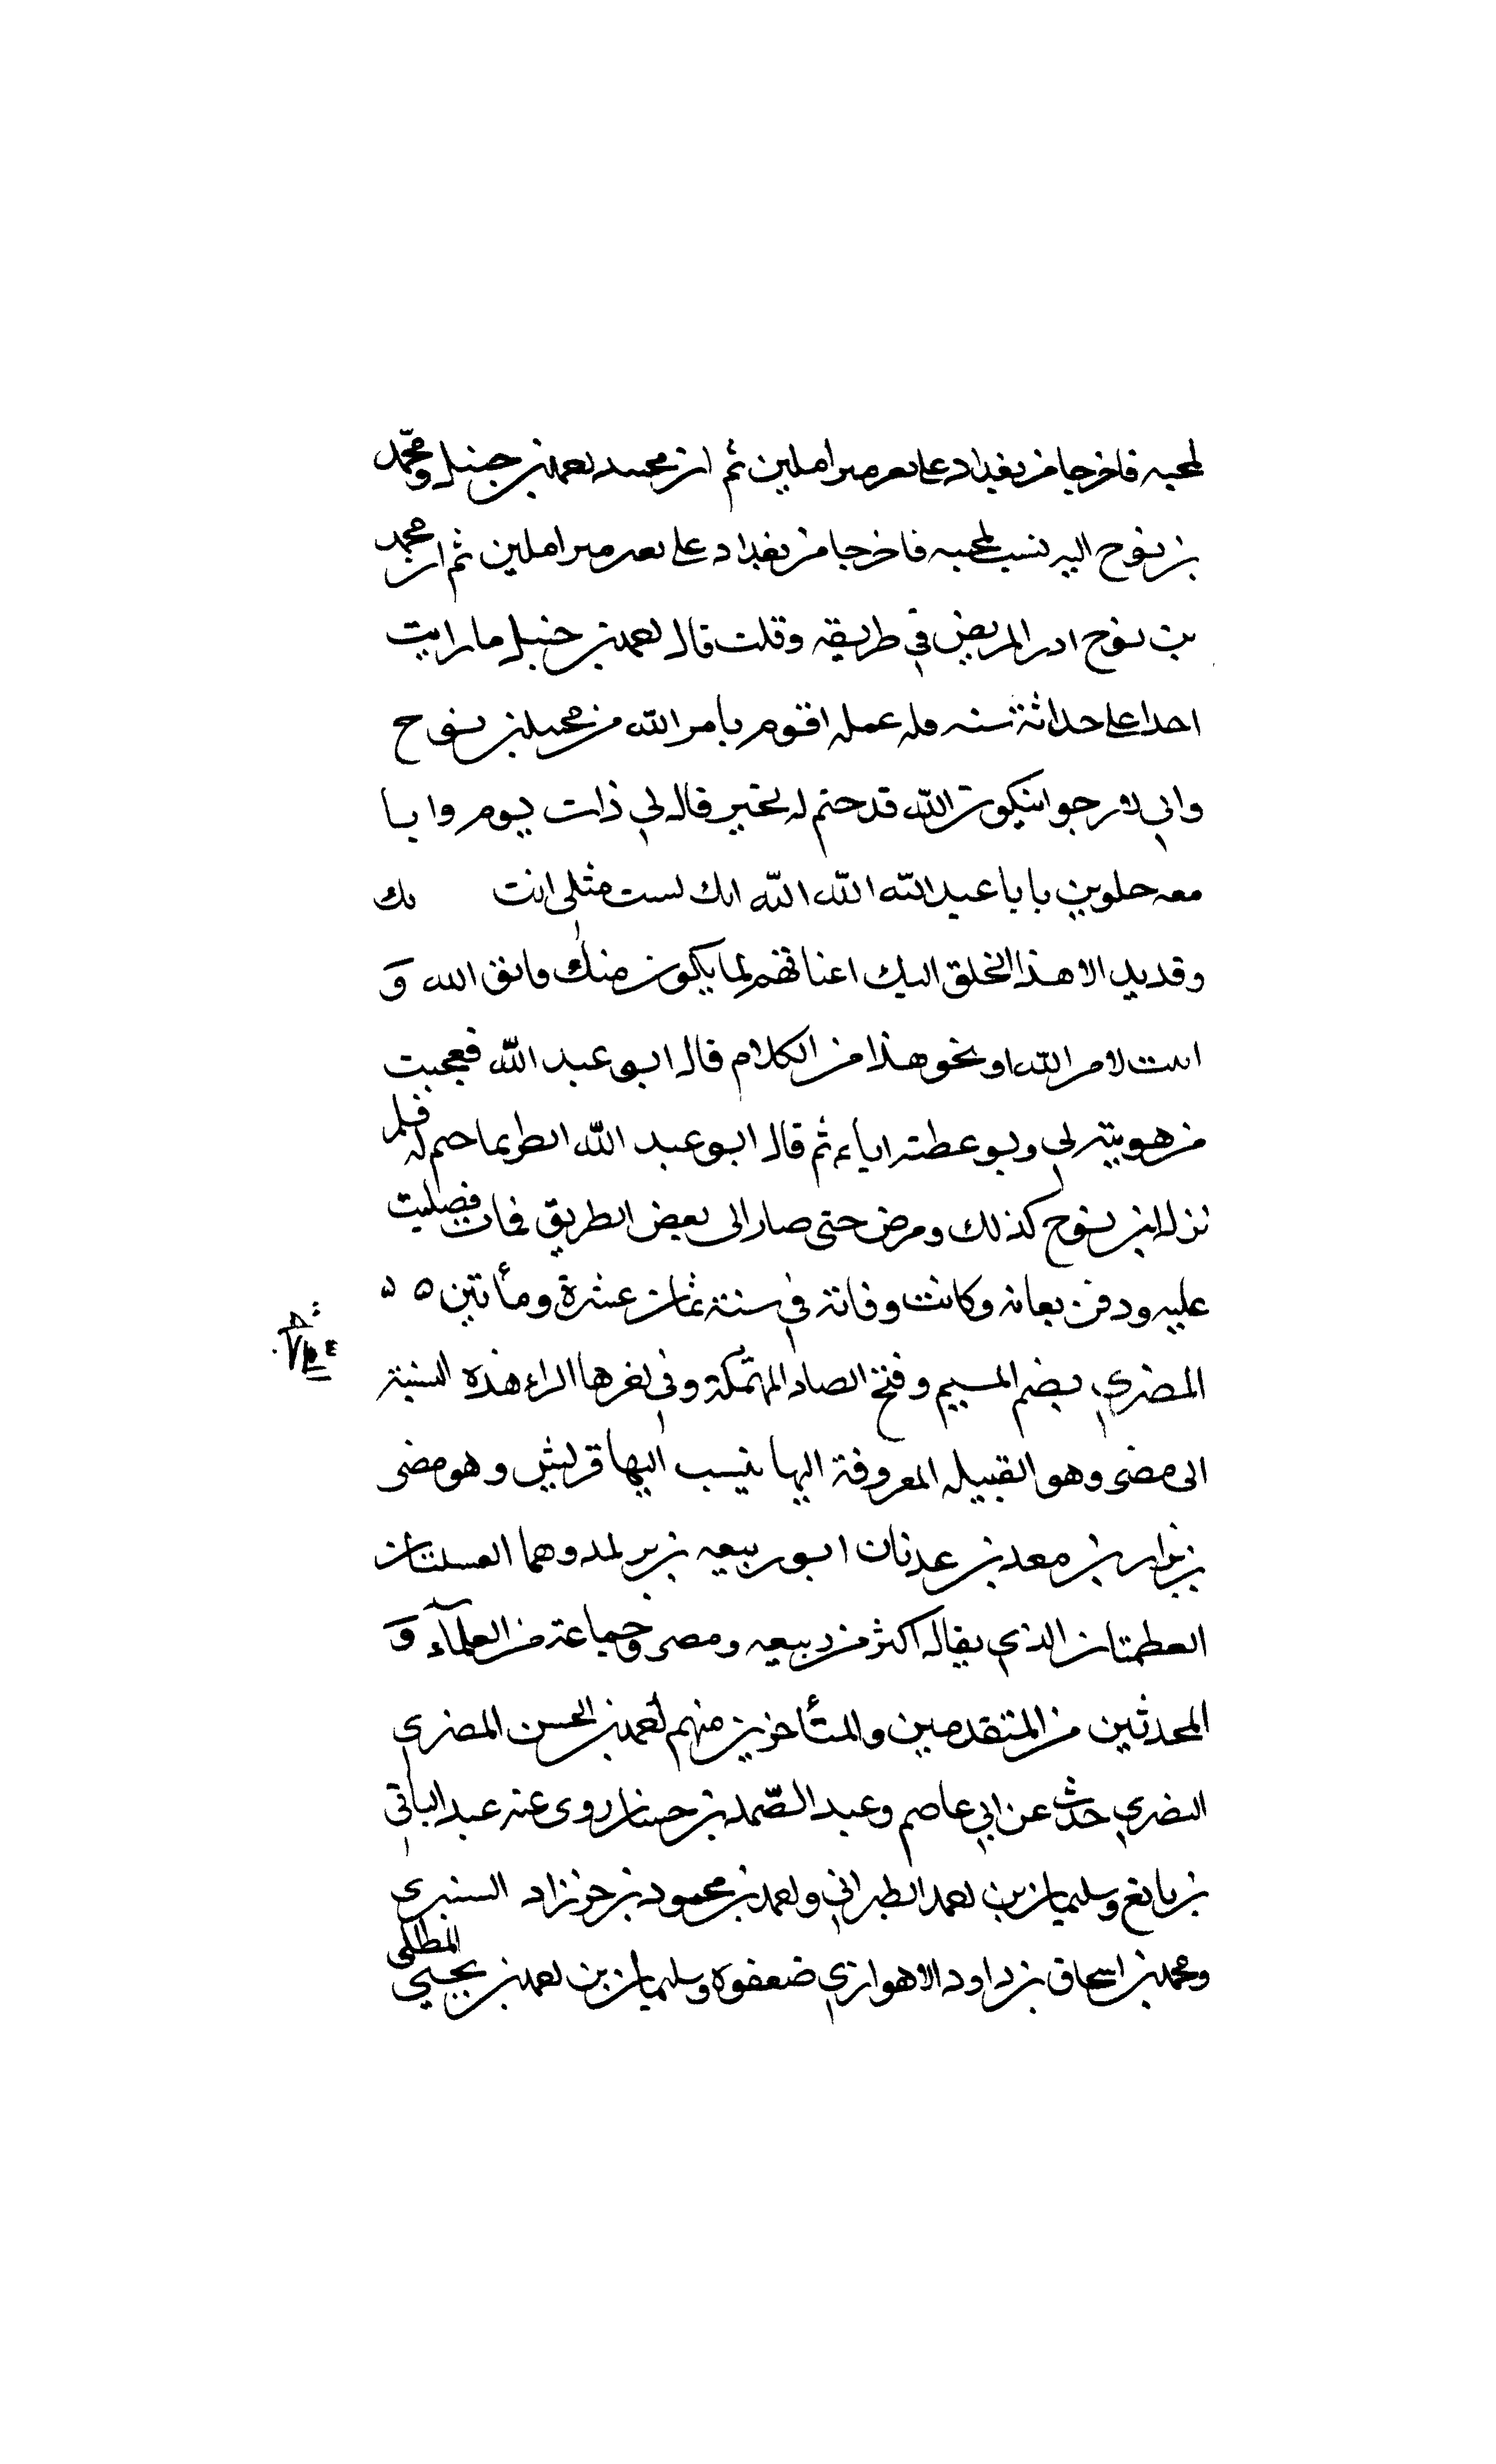 لمحبه فاخرجا من بغداد على بعير متزاملين ثم ان محمد احمد بن حنبل ومحمد
بن نوح اليه نسب لمحبه فاخرجا من بغداد على بعير متزاملين ثم ان محمد
بن نوح المريض في طريقه وقلت قال احمد بن حنبل ما رايت
احدا على حداثة سنه وله عمله اقوم بامر الله من محمد بن نوح
واني لارجو ان يكون الله قد ختم له بخير قال لي ذات يوم وانا
معه خلوين يا با عبد الله الله الله انك لست مثلي انت
وقد يد الا هذا الخلق اليك اعناقهم لما يكون منك فاتق الله و
اثبت لامر الله او نحو هذا من الكلام قال ابو عبد الله فعجبت
من هو يته لي وبوعظته اياي ثم قال ابو عبد الله انظر بما ختم له فلم
نزل ابن نوح كذلك ومرض حتى صار الى بعض الطريق فمات فصليت
عليه ودفن بعانه وكانت وفاته في سنة ثمان عشرة ومأتين ه ه
المضري بضم الميم وفتح الضاد وفي اخرها الراء هذه النسبة
الى مضر وهو القبيله المعروفة اليها ينسب اليها قريش وهو مضر
بن نزار بن معد بن عدنان ابو ربيعه بن وهما القبيلتان
العظمتان الذي يقال اكثر من ربيعه ومضر وجماعة من العلمآء و
المحدثين من المتقدمين والمتأخرين منهم احمد بن الحسن المضري
البصري حدث عن ابي عاصم وعبد الصمد بن حسان روى عنه عبد الباقي
بن نافع وسليمان بن احمد الطبراني واحمد بن محمود بن خرزاد السنيري
ومحمد بن اسحاق بن داود الاهوازي ضعفوه وسليمان بن احمد بن يحيى
المطلي